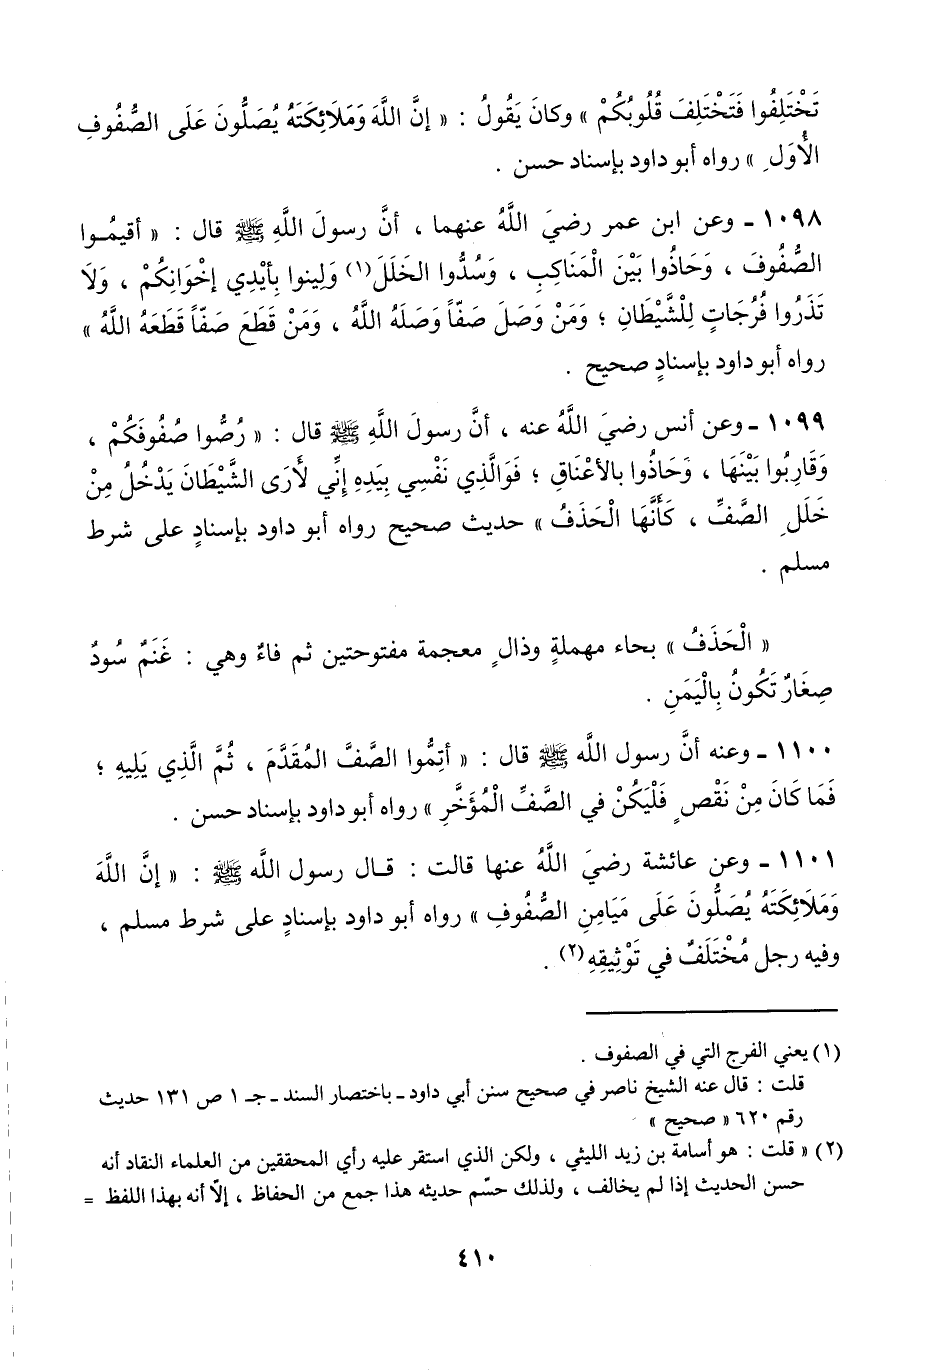 تَخْتَلِفُوا فَتَخْتَلِفَ قُلُوبُكُمْ » وكانَ يَقُولُ : « إنَّ اللَّهَ وَمَلَائِكَتَهُ يُصَلُّونَ عَلَى الصُّفُوفِ
الأُوَلِ » رواه أبو داود بإسناد حسن .
١٠٩٨ ـ وعن ابن عمر رضيَ اللَّهُ عنهما ، أنَّ رسولَ اللَّهِ ﷺ قال : « أقيمُـوا
الصُّفُوفَ ، وَحَاذُوا بَيْنَ الْمَنَاكِبِ ، وَسُدُّوا الخَلَلَ(١) وَلِينوا بِأيْدِي إخْوَانِكُمْ ، وَلَا
تَذَرُوا فُرُجَاتٍ لِلْشَّيْطَانِ ؛ وَمَنْ وَصَلَ صَفّاً وَصَلَهُ اللَّهُ ، وَمَنْ قَطَعَ صَفّاً قَطَعَهُ اللَّهُ »
رواه أبو داود بإسنادٍ صحيح .
١٠٩٩ ـ وعن أنس رضيَ اللَّهُ عنه ، أنَّ رسولَ اللَّهِ ﷺ قال : « رُصُّوا صُفُوفَكُمْ ،
وَقَارِبُوا بَيْنَهَا ، وَحَاذُوا بالأعْنَاقِ ؛ فَوَالَّذِي نَفْسِي بِيَدِهِ إنِّي لأَرَى الشَّيْطَانَ يَدْخُلُ مِنْ
خَلَلِ الصَّفِّ ، كَأَنَّهَا الْحَذَفُ » حديث صحيح رواه أبو داود بإسنادٍ على شرط
مسلم .
« الْحَذَفُ » بحاء مهملةٍ وذالٍ معجمة مفتوحتين ثم فاءٌ وهي : غَنَمٌ سُودٌ
صِغَارٌ تَكُونُ بِالْيَمَنِ .
١١٠٠ ـ وعنه أنَّ رسول اللَّه ﷺ قال : « أَتِمُّوا الصَّفَّ المُقَدَّمَ ، ثُمَّ الَّذِي يَلِيهِ ؛
فَمَا كَانَ مِنْ نَقْصٍ فَلْيَكُنْ في الصَّفِّ الْمُؤَخَّرِ » رواه أبو داود بإسناد حسن .
١١٠١ ـ وعن عائشة رضيَ اللَّهُ عنها قالت : قـال رسول اللَّه ﷺ : « إنَّ اللَّهَ
وَمَلَائِكَتَهُ يُصَلُّونَ عَلَى مَيَامِنِ الصُّفُوفِ » رواه أبو داود بإسنادٍ على شرط مسلم ،
وفيه رجل مُخْتَلَفٌ في تَوْثِيقِهِ(٢) .
(١) يعني الفرج التي في الصفوف .
قلت : قال عنه الشيخ ناصر في صحيح سنن أبي داود ـ باختصار السند ـ جـ ١ ص ١٣١ حديث
رقم ٦٢٠ « صحيح »
(٢) « قلت : هو أسامة بن زيد الليثي ، ولكن الذي استقر عليه رأي المحققين من العلماء النقاد أنه
حسن الحديث إذا لم يخالف ، ولذلك حسّم حديثه هذا جمع من الحفاظ ، إلاّ أنه بهذا اللفظ =
٤١٠